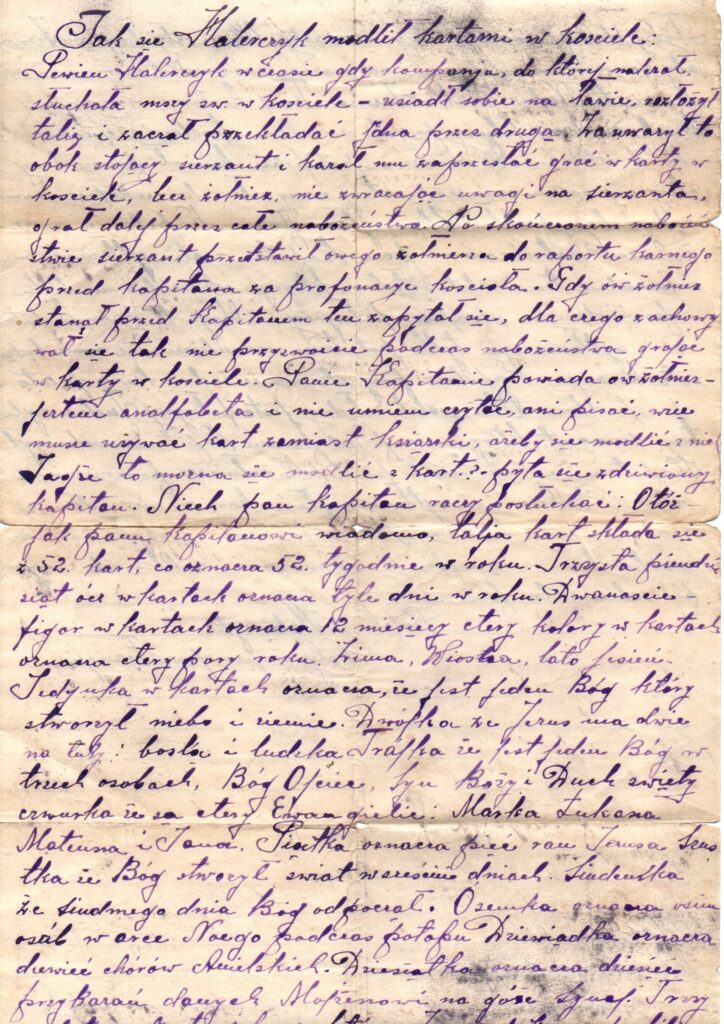 Jak sie Halerczyk modlił kartami w kosciele:
Pewien Halerczyk w czasie gdy kompanja, do której nalezał,
słuchała mszy sw. w kosciele – usiadł sobie na ławie, rozłożył
talię i zaczał przekładać jdna przez drugą. Zauwarzył to
obok stojący sierzant i kazał mu zaprzestać grać w karty w
kosciele, lecz żołnierz, nie zwracając uwagi na sierżanta,
grał dalej przez całe nabożeństwo. Po skończonem naboże
stwie sierżant przedstawił owego żołnierza do raportu karnego
przed kapitana za profonacye kosciola. Gdy ów żołnierz
stanął przed Kapitanem ten zapytał się, dla czego zachowy
wał się tak nie przyzwoicie podczas nabożeństwa grając
w karty w kosciele. Panie Kapitanie powiada ów żołnierz –
jestem analfabeta i nie umiem czytać, ani pisać, wiec
musze używać kart zamiast ksiarzki, ażeby sie modlić z niej
Jagże to mozna się modlić z kart?- pyta się zdziwiony
kapitan. Niech pan kapitan raczy posłuchać: Otóż –
jak panu kapitanowi wiadomo, talja kart składa sie
z 52. kart, co oznacza 52. tygodnie w roku. Trzysta piendzi
siąt ócz w kartach oznacza tyle dni w roku. Dwanascie –
figor w kartach oznacza 12 miesięcy cztery kolory w kartach
oznacza cztery pory roku. Zima, Wiosna, lato jesień.
Jedynka w kartach oznacza, że jest jeden Bóg który
stworzył niebo i ziemie. Dwójka że Jezus ma dwie
na tury: boska i ludzka Trójka że jest jeden Bóg w
trzech osobach, Bóg Ojciec, Syn Boży i Duch swięty
czwurka że sa cztery Ewangielie: Marka Łukasza
Mateusza i Jana. Piątka oznacza pieć ran Jezusa Szus
tka że Bóg stworzył swiat w szesciu dniach. Siudemka
że siudmego dnia Bóg odpoczał. Ósemka oznacza osim
osób w arce Noego podczas potopu Dziewiadka oznacza
dziewieć chórów Anielskich. Dziesiatka oznacza dziesiec
przykazań danych Mojżeszowi na góże Synaj. Trzy